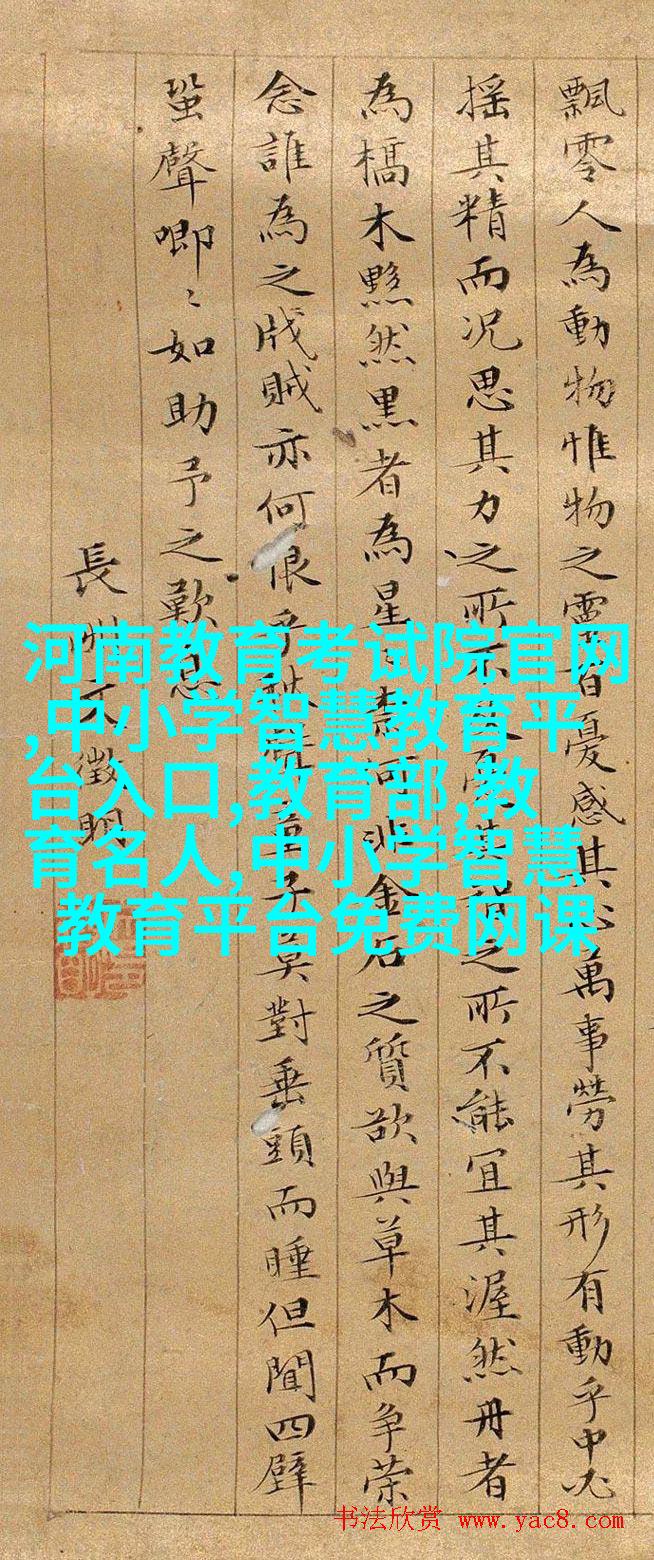 飄零人為動物惟物之靈百憂感其心萬事勞其形有動乎中必
搖其精而況思其力之所不及憂其智之所不能宜其渥然丹者
為槁木黟然黑者為星〻奈何非金石之質欲與草木而爭榮
念誰為之戕賊亦何恨乎秋聲童子莫對垂頭而睡但聞四壁
蛩聲唧〻如助予之歎息
長洲文徵明
河南教育考试院官网
,中小学智慧教育平
台入口,教育部,教
育名人,中小学智慧
教育平台免费网课
书法欣赏 www.yac8.com